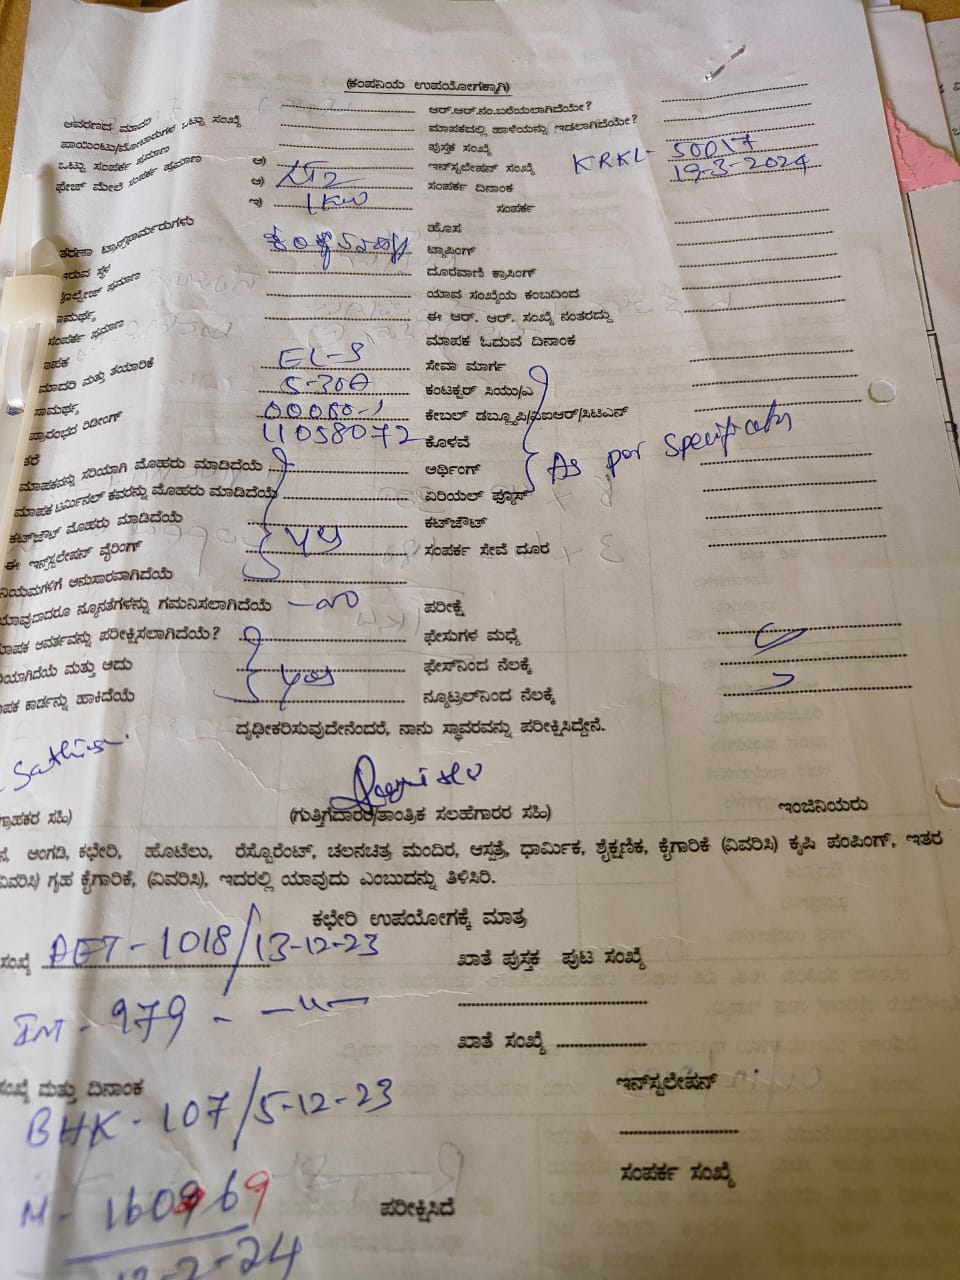 (ಕಂಪನಿಯ ಉಪಯೋಗಕ್ಕಾಗಿ)
ಆವರಣದ ಮಾದರಿ
ಆರ್.ಆರ್.ನಂ.ಬರೆಯಲಾಗಿದೆಯೇ?
ಪಾಯಿಂಟು/ಮೋಟಾರುಗಳ ಒಟ್ಟು ಸಂಖ್ಯೆ
ಮಾಪಕದಲ್ಲಿ ಹಾಳೆಯನ್ನು ಇಡಲಾಗಿದೆಯೇ?
ಒಟ್ಟು ಸಂಪರ್ಕ ಪ್ರಮಾಣ
ಪುಸ್ತಕ ಸಂಖ್ಯೆ
ಫೇಜ್ ಮೇಲೆ ಸಂಪರ್ಕ ಪ್ರಮಾಣ ಅ)
ಇನ್‌ಸ್ಟಲೇಷನ್ ಸಂಖ್ಯೆ KRKL- 50017
ಆ)
ಸಂಪರ್ಕ ದಿನಾಂಕ 19-3-2024
ಇ) 1KW
ಸಂಪರ್ಕ
ತರಣಾ ಟ್ರಾನ್ಸ್‌ಫಾರ್ಮರುಗಳು
ಹೊಸ
ಇರುವ ಸ್ಥಳ
ಟ್ಯಾಪಿಂಗ್
ವೋಲ್ಟೇಜ್ ಪ್ರಮಾಣ
ದೂರವಾಣಿ ಕ್ರಾಸಿಂಗ್
ಸಾಮರ್ಥ್ಯ
ಯಾವ ಸಂಖ್ಯೆಯ ಕಂಬದಿಂದ
ಸಂಪರ್ಕ ಪ್ರಮಾಣ
ಈ ಆರ್. ಆರ್. ಸಂಖ್ಯೆ ನಂತರದ್ದು
ಮಾಪಕ
ಮಾಪಕ ಓದುವ ದಿನಾಂಕ
ಮಾದರಿ ಮತ್ತು ತಯಾರಿಕೆ EL-S
ಸೇವಾ ಮಾರ್ಗ
ಸಾಮರ್ಥ್ಯ 5-30A
ಕಂಟಕ್ಟರ್ ಸಿಯು/ಎ
ಪ್ರಾರಂಭದ ರಿಡೀಂಗ್ 00080-1
ಕೇಬಲ್ ಡಬ್ಲ್ಯೂಪಿ/ವಿಐಆರ್/ಸಿಟಿಎನ್
ತರೆ 11058072
ಕೊಳವೆ
As per
ಮಾಪಕವನ್ನು ಸರಿಯಾಗಿ ಮೊಹರು ಮಾಡಿದೆಯೆ
ಆರ್ಥಿಂಗ್
ಮಾಪಕ ಟರ್ಮಿನಲ್ ಕವರನ್ನು ಮೊಹರು ಮಾಡಿದೆಯೆ
ಏರಿಯಲ್ ಫ್ಯೂಸ್
ಕಟ್‌ಔಟ್ ಮೊಹರು ಮಾಡಿದೆಯೆ
ಕಟ್‌ಔಟ್
ಈ ಇನ್‌ಸ್ಟಲೇಷನ್ ವೈರಿಂಗ್ yes
ಸಂಪರ್ಕ ಸೇವೆ ದೂರ
ನಿಯಮಗಳಿಗೆ ಅನುಸಾರವಾಗಿದೆಯೆ
ಯಾವುದಾದರೂ ನ್ಯೂನತೆಗಳನ್ನು ಗಮನಿಸಲಾಗಿದೆಯೆ - no
ಪರೀಕ್ಷೆ
ಮಾಪಕ ಆವರ್ತವನ್ನು ಪರೀಕ್ಷಿಸಲಾಗಿದೆಯೆ?
ಫೇಸುಗಳ ಮಧ್ಯೆ
ಯಾಗಿದೆಯೆ ಮತ್ತು ಅದು
ಫೇಸ್‌ನಿಂದ ನೆಲಕ್ಕೆ
ಮಾಪಕ ಕಾರ್ಡನ್ನು ಹಾಕಿದೆಯೆ yes
ನ್ಯೂಟ್ರಲ್‌ನಿಂದ ನೆಲಕ್ಕೆ
ದೃಢೀಕರಿಸುವುದೇನೆಂದರೆ, ನಾನು ಸ್ಥಾವರವನ್ನು ಪರೀಕ್ಷಿಸಿದ್ದೇನೆ.
ಗ್ರಾಹಕರ ಸಹಿ)
(ಗುತ್ತಿಗೆದಾರರ/ತಾಂತ್ರಿಕ ಸಲಹೆಗಾರರ ಸಹಿ)
ಇಂಜಿನಿಯರು
ಅಂಗಡಿ, ಕಛೇರಿ, ಹೊಟೆಲು, ರೆಸ್ಟೊರೆಂಟ್, ಚಲನಚಿತ್ರ ಮಂದಿರ, ಆಸ್ಪತ್ರೆ, ಧಾರ್ಮಿಕ, ಶೈಕ್ಷಣಿಕ, ಕೈಗಾರಿಕೆ (ವಿವರಿಸಿ) ಕೃಷಿ ಪಂಪಿಂಗ್, ಇತರ
ವಿವರಿಸಿ) ಗೃಹ ಕೈಗಾರಿಕೆ, (ವಿವರಿಸಿ), ಇದರಲ್ಲಿ ಯಾವುದು ಎಂಬುದನ್ನು ತಿಳಿಸಿರಿ.
ಕಛೇರಿ ಉಪಯೋಗಕ್ಕೆ ಮಾತ್ರ
ಸಂಖ್ಯೆ AET - 1018/13-12-23
ಖಾತೆ ಪುಸ್ತಕ ಪುಟ ಸಂಖ್ಯೆ
Int - 979 - -"-
ಖಾತೆ ಸಂಖ್ಯೆ
ಸಂಖ್ಯೆ ಮತ್ತು ದಿನಾಂಕ
ಇನ್‌ಸ್ಟಲೇಷನ್
BHK - 107/5-12-23
ಸಂಪರ್ಕ ಸಂಖ್ಯೆ
M - 160969
ಪರೀಕ್ಷಿಸಿದೆ